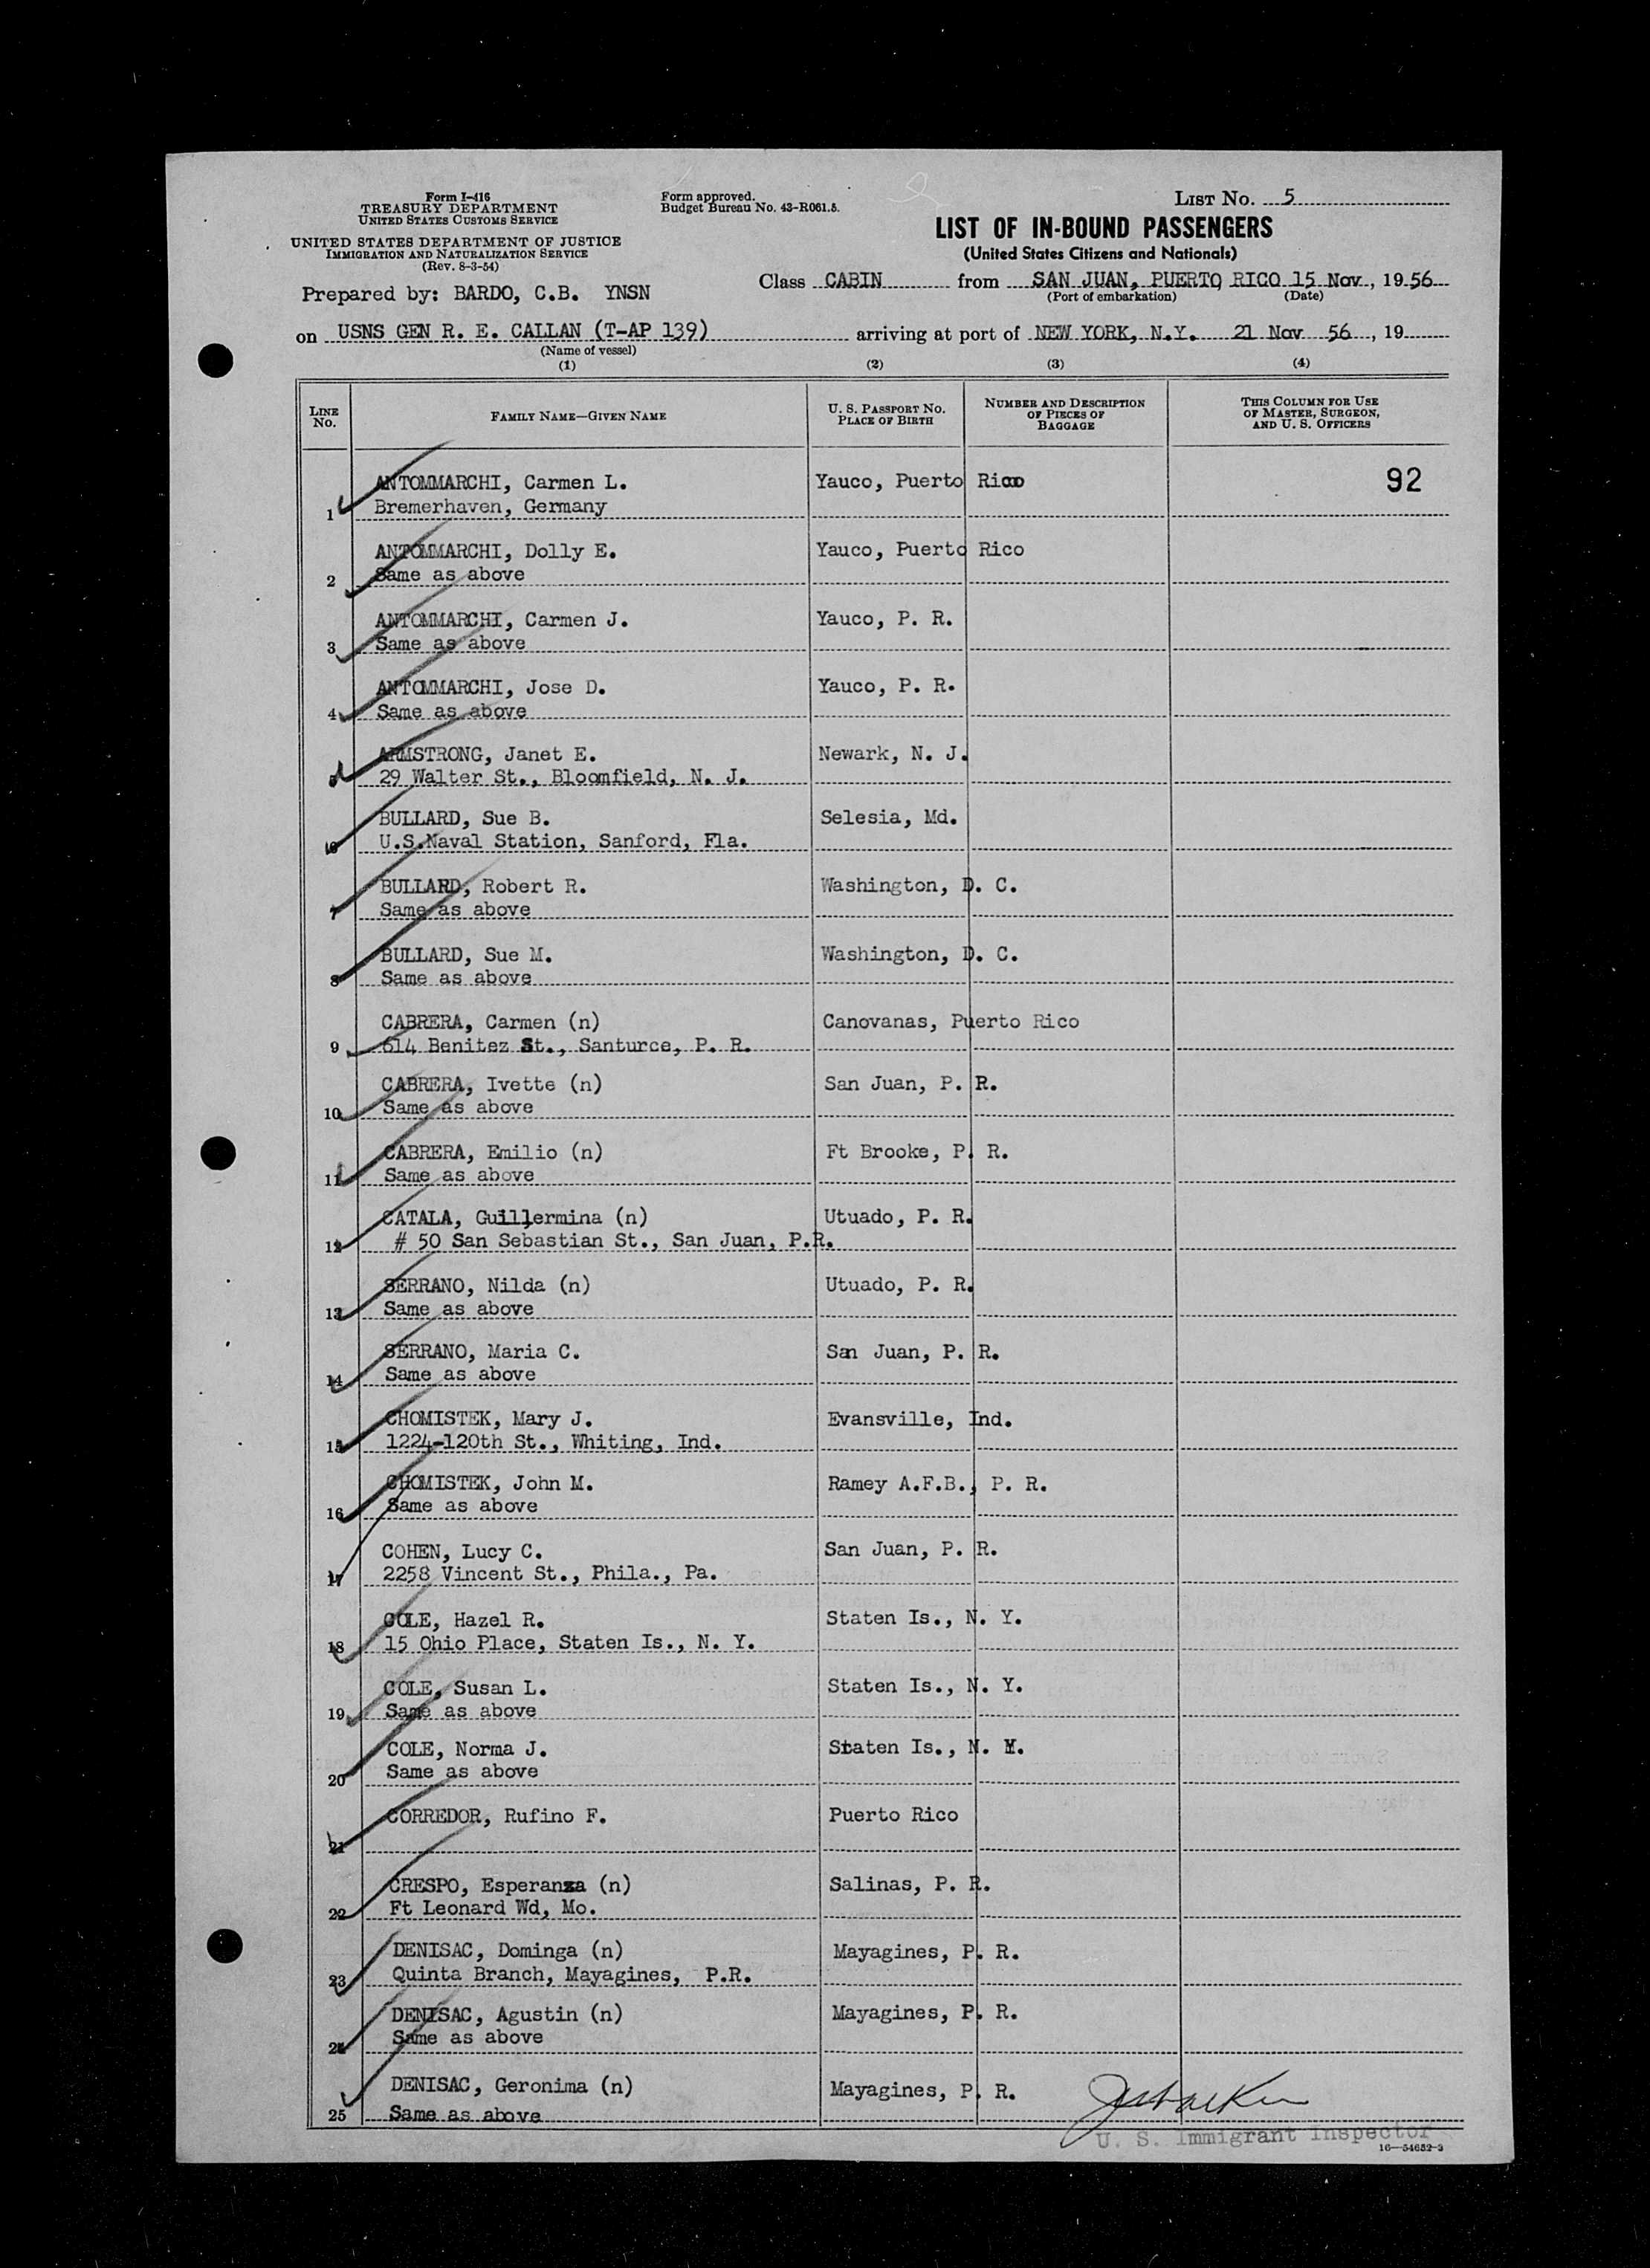 Form I-416
TREASURY DEPARTMENT
UNITED STATES CUSTOMS SERVICE
UNITED STATES DEPARTMENT OF JUSTICE
IMMIGRATION AND NATURALIZATION SERVICE
(Rev. 8-3-54)
Form approved.
Budget Bureau No. 43-R061.5.
LIST No. 5
LIST OF IN-BOUND PASSENGERS
(United States Citizens and Nationals)
Prepared by: BARDO, C.B. YNSN
Class CABIN from SAN JUAN, PUERTO RICO 15 Nov , 19 56
(Port of embarkation) (Date)
on USNS GEN R. E. CALLAN (T-AP 139) arriving at port of NEW YORK, N.Y. 21 Nov 56 , 19
(Name of vessel)
(1) (2) (3) (4)
LINE No. FAMILY NAME—GIVEN NAME U. S. PASSPORT NO. PLACE OF BIRTH NUMBER AND DESCRIPTION OF PIECES OF BAGGAGE THIS COLUMN FOR USE OF MASTER, SURGEON, AND U. S. OFFICERS
ANTOMMARCHI, Carmen L. Yauco, Puerto Rico 92
1 Bremerhaven, Germany
ANTOMMARCHI, Dolly E. Yauco, Puerto Rico
2 Same as above
ANTOMMARCHI, Carmen J. Yauco, P. R.
3 Same as above
ANTOMMARCHI, Jose D. Yauco, P. R.
4 Same as above
ARMSTRONG, Janet E. Newark, N. J.
5 29 Walter St., Bloomfield, N. J.
BULLARD, Sue B. Selesia, Md.
6 U.S.Naval Station, Sanford, Fla.
BULLARD, Robert R. Washington, D. C.
7 Same as above
BULLARD, Sue M. Washington, D. C.
8 Same as above
CABRERA, Carmen (n) Canovanas, Puerto Rico
9 614 Benitez St., Santurce, P. R.
CABRERA, Ivette (n) San Juan, P. R.
10 Same as above
CABRERA, Emilio (n) Ft Brooke, P. R.
11 Same as above
CATALA, Guillermina (n) Utuado, P. R.
12 # 50 San Sebastian St., San Juan, P.R.
SERRANO, Nilda (n) Utuado, P. R.
13 Same as above
SERRANO, Maria C. San Juan, P. R.
14 Same as above
CHOMISTEK, Mary J. Evansville, Ind.
15 1224-120th St., Whiting, Ind.
CHOMISTEK, John M. Ramey A.F.B., P. R.
16 Same as above
COHEN, Lucy C. San Juan, P. R.
17 2258 Vincent St., Phila., Pa.
COLE, Hazel R. Staten Is., N. Y.
18 15 Ohio Place, Staten Is., N. Y.
COLE, Susan L. Staten Is., N. Y.
19 Same as above
COLE, Norma J. Staten Is., N. Y.
20 Same as above
CORREDOR, Rufino F. Puerto Rico
21
CRESPO, Esperanza (n) Salinas, P. R.
22 Ft Leonard Wd, Mo.
DENISAC, Dominga (n) Mayagines, P. R.
23 Quinta Branch, Mayagines, P.R.
DENISAC, Agustin (n) Mayagines, P. R.
24 Same as above
DENISAC, Geronima (n) Mayagines, P. R.
25 Same as above
U. S. Immigrant Inspector
16—54652-3